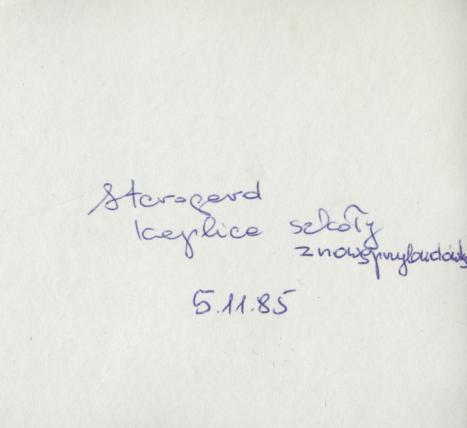 Starogard
kaplica szkoły
z nową przybudówką
5.11.85